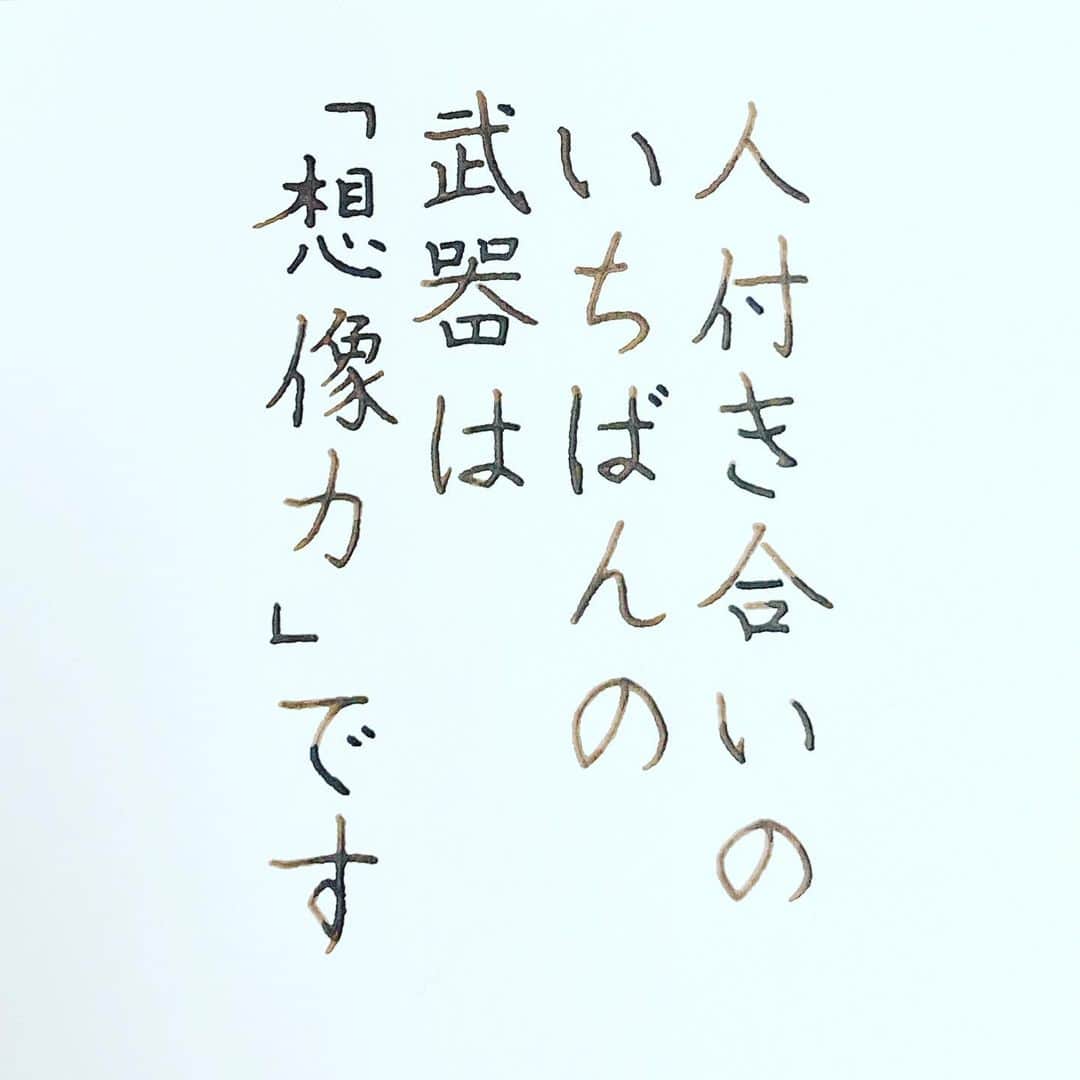 人付き合いの
いちばんの
武器は
「想像力」です